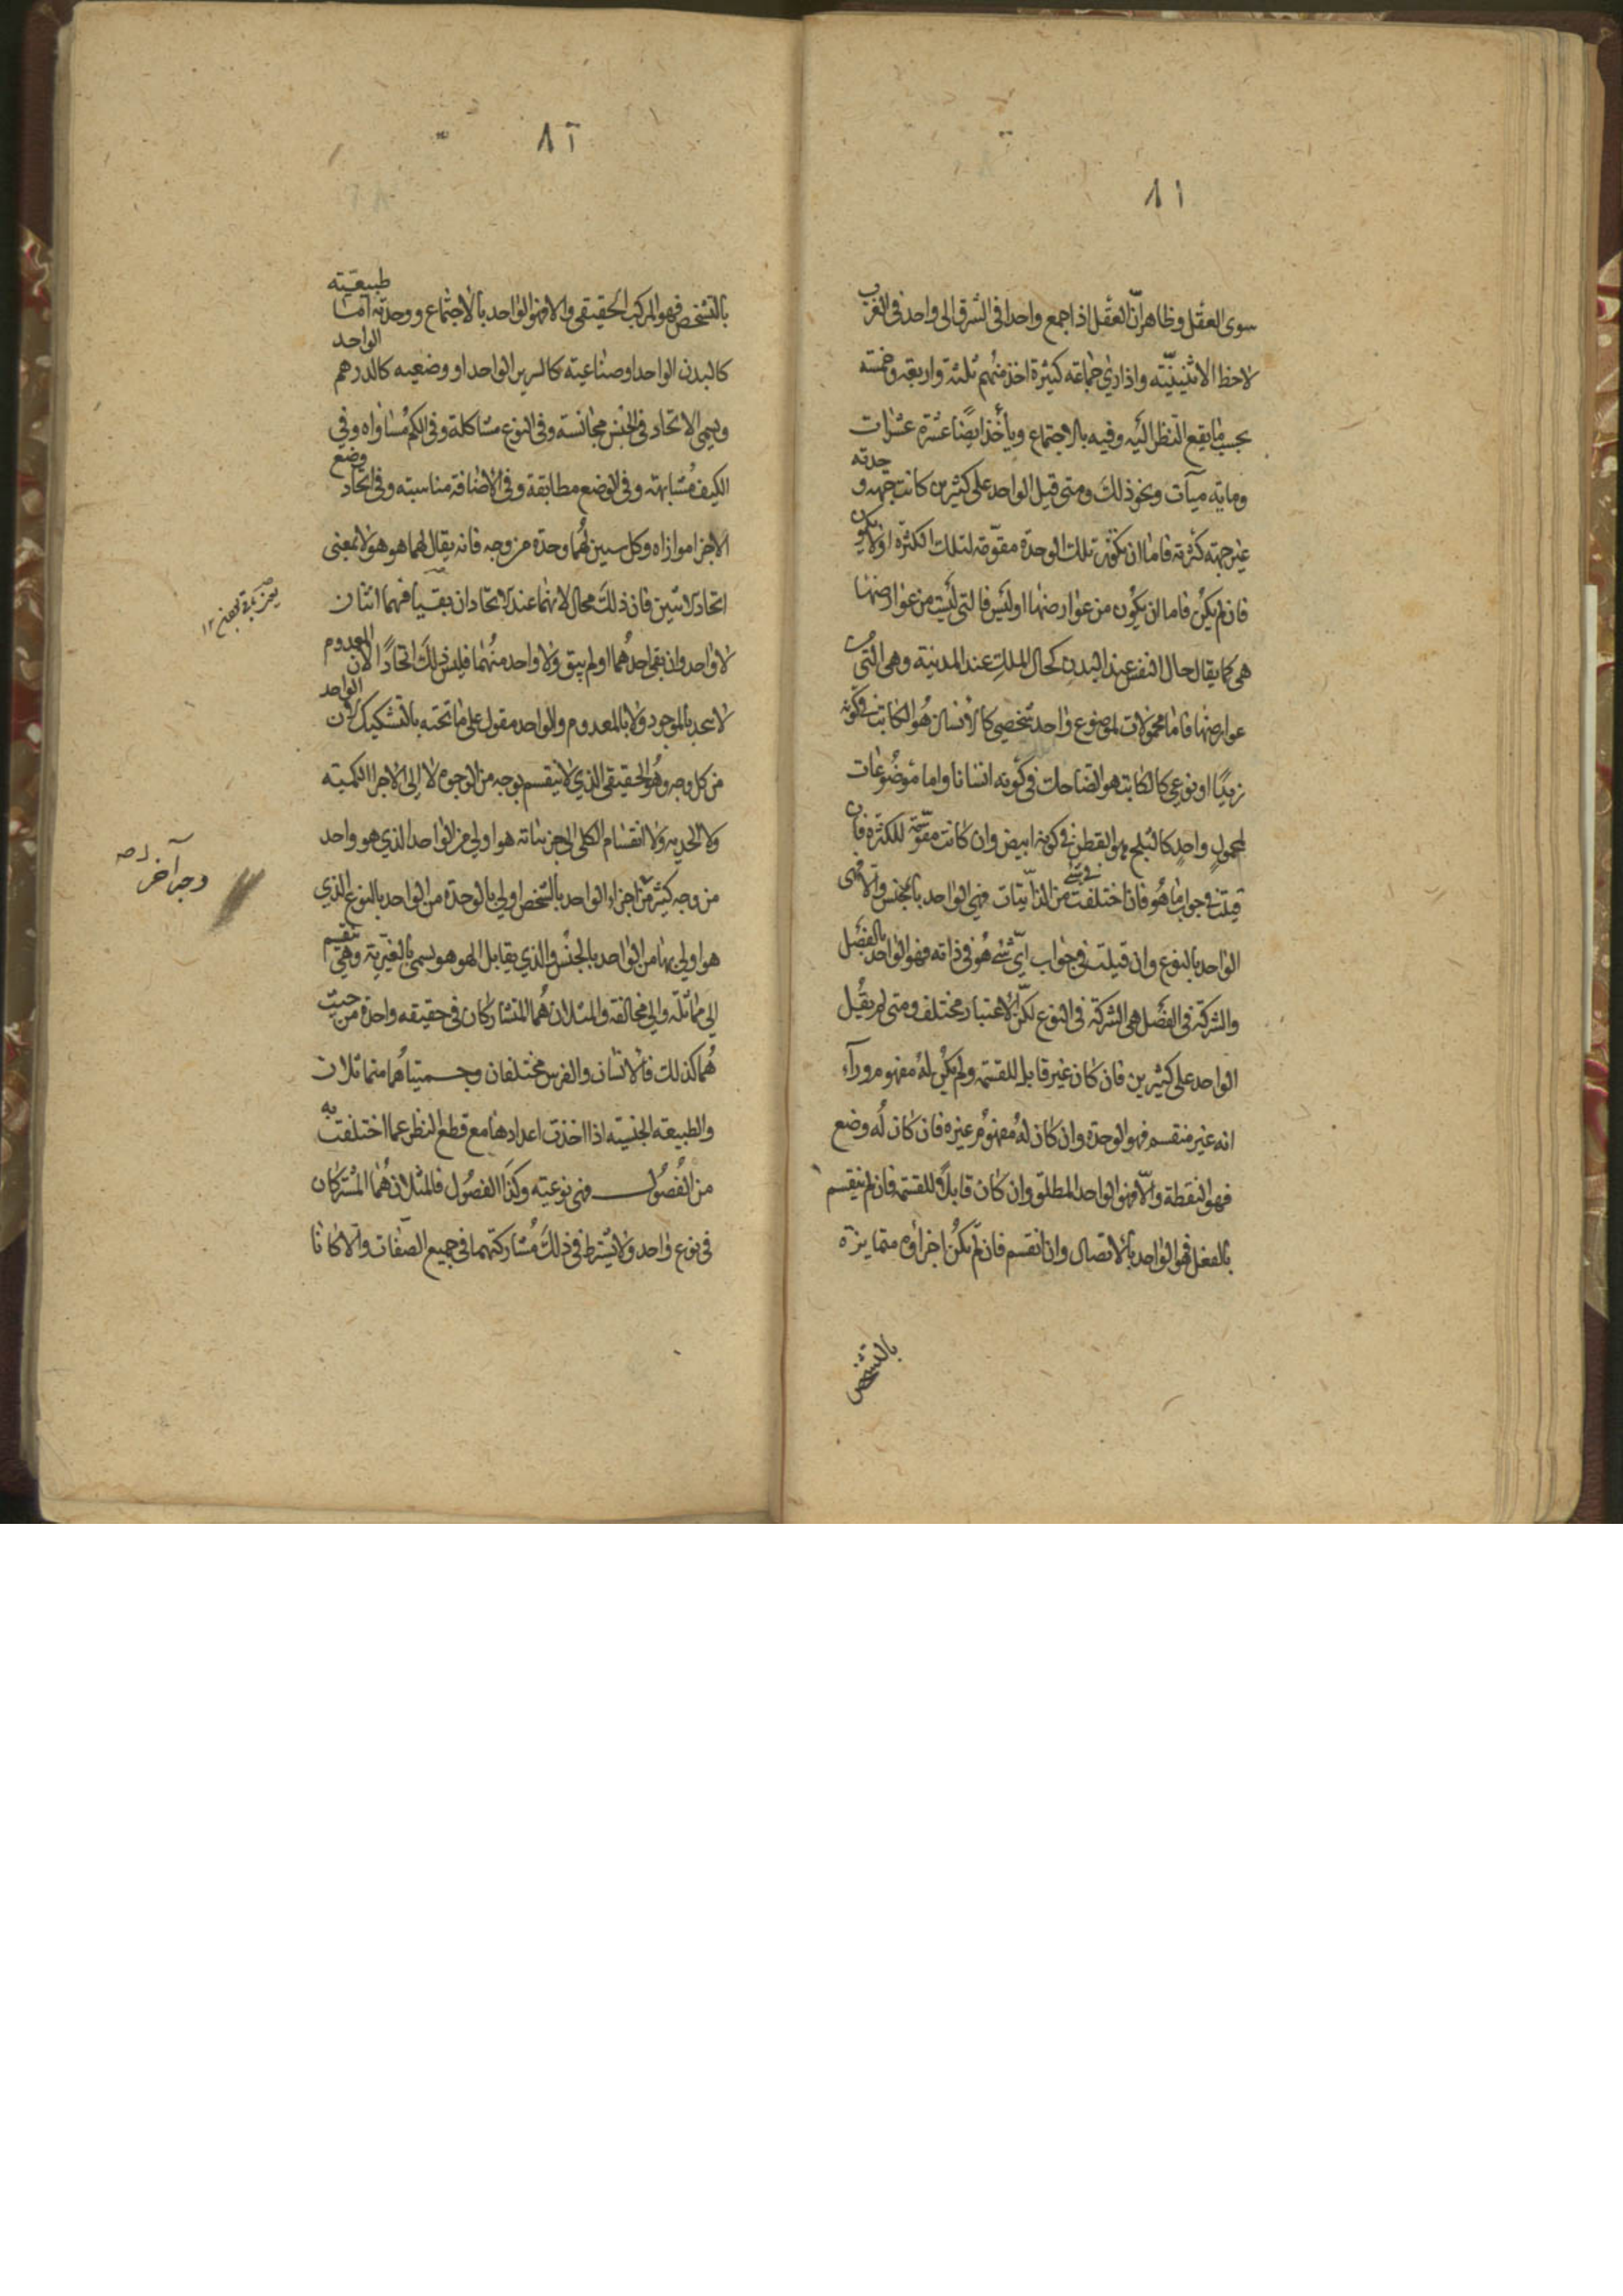 ٨١
سوى العقل وظاهر انّ العقل اذا جمع واحدا فى الشرق الى واحد فى الغرب
لاحظ الاثنينيّته واذا راي جماعته كثيرة اخذ منهم ثلثه واربعه وخمسته
بحسب ما يقع النظر اليه وفيه بالاجتماع ويأخذ ايضًا عشرة عشرات
ومايه ميآت ونحو ذلك ومتى قيل الواحد على كثيرين كانت جهه وحدته
غير جهته كثرته فاما ان تكون تلك الوحدة مقوّمته لتلك الكثرة او لا يكون
فان لم يكن فاما ان يكون من عوارضها او ليس فالتى ليست من عوارضها
هى كما يقال حال النفس عند البدن كحال الملك عند المدينة وهى التى
عوارضها فاما محمولات لموضوع واحد شخصي كالانسان هو الكاتب فى كونه
زيدًا او نوعي كالكاتب هو الضاحك فى كونه انسانا واما موضوعات
لمحمول واحد كالثلج هو القطن فى كونه ابيض وان كانت مقوّمته للكثرة فان
قيلت فى جواب ما هو فان اختلفت فى شى من الذاتيّات فهى الواحد بالجنس والا فهى
الواحد بالنوع وان قيلت فى جواب ايّ شى هو فى ذاته فهو الواحد بالفصل
والشركة فى الفصل هى الشركة فى النوع لكنّ الاعتبار مختلف ومتى لم يقيل
الواحد على كثيرين فان كان غير قابل للقسمته ولم يكن له مفهوم ورآء
انه غير منقسم فهو الوحدة وان كان له مفهوم غيره فان كان له وضع
فهو النقطة والّا فهو الواحد المطلق وان كان قابلًا للقسمته فان لم ينقسم
بالفعل فهو الواحد بالاتصال وان انقسم فان لم تكن اجزاؤه متمايزة
بالتشخص
٨٢
بالتشخص فهو المركب الحقيقى والا فهو الواحد بالاجتماع ووحدته اما طبيعيته
كالبدن الواحد او صناعيته كالسرير الواحد او وضعيه كالدرهم الواحد
ويسمى الاتحاد فى الجنس مجانسة وفى النوع مشاكلة وفى الكم مساواه وفي
الكيف مشابهته وفى الوضع مطابقة وفى الاضافة مناسبته وفى اتحاد وضع
الاجزا موازاه وكل سيين لهما وحدة من وجه فانه يقال لهما هو هو لا بمعنى
اتحاد الاثنين فان ذلك محال لانهما عند الاتحاد ان بقيا فهما اثنان
لا واحد وان بقى احدهما او لم يبق ولا واحد منهما فليس ذلك اتحادًا لان المعدوم
لا يتحد بالموجود ولا بالمعدوم والواحد مقول على ما تحته بالتشكيك لان الواحد
من كل وجه وهو الحقيقى الذي لا ينقسم بوجه من الوجوه لا إلى الاجزا الكميته
ولا الحديه ولا انقسام الكلى الى جزئياته هو اولى من الواحد الذي هو واحد
من وجه كثير من اجزاء الواحد بالشخص اولى بالوحدة من الواحد بالنوع الذي
هو اولى بها من الواحد بالجنس والذي يقابل الهو هو يسمى بالغيريّه وهي تنقسم
الى مماثله والى مخالفه والمثلان هما المتشاركان فى حقيقه واحدة من حيث
هما كذلك فالانسان والفرس مختلفان وجسميتاهما متماثلان
والطبيعته الجنسيته اذا اخذت اعدادها مع قطع النظر عما اختلفت به
من الفصول فهى نوعيته وكذا الفصول فالمثلان هما المشتركان
فى نوع واحد ولا يشترط فى ذلك مشاركتهما فى جميع الصفات والا كانا
وجه آخر